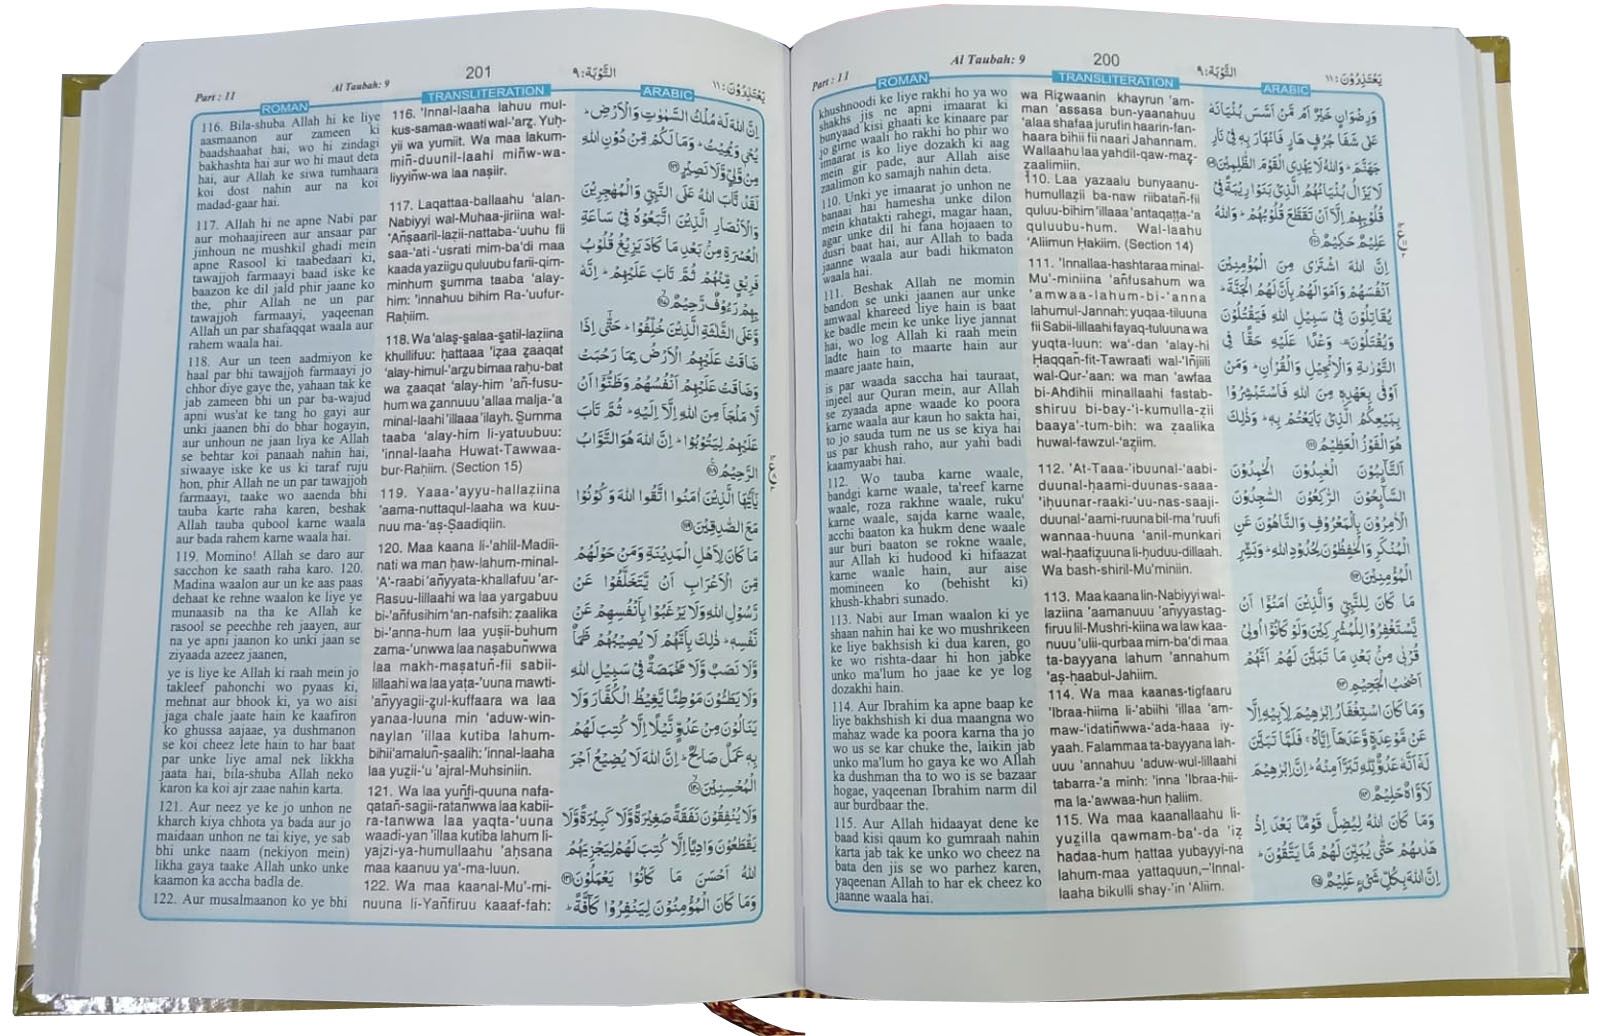 Part : 11
Al Taubah: 9
200
التَّوْبَة:٩
يَعْتَذِرُوْنَ:١١
ROMAN
TRANSLITERATION
ARABIC
khushnoodi ke liye rakhi ho ya wo
shakhs jis ne apni imaarat ki
bunyaad kisi ghaati ke kinaare par
jo girne wali ho rakhi ho phir wo
imaarat is ko liye dozakh ki aag
mein gir pade, aur Allah aise
zaalimon ko samajh nahin deta.
110. Unki ye imaarat jo unhon ne
banaai hai hamesha unke dilon
mein khatakti rahegi, magar haan,
agar unke dil hi fana hojaaen to
dusri baat hai, aur Allah to bada
jaanne waala aur badi hikmaton
waala hai.
111. Beshak Allah ne momin
bandon se unki jaanen aur unke
amwaal khareed liye hain is baat
ke badle mein ke unke liye jannat
hai, wo log Allah ki raah mein
ladte hain to maarte hain aur
maare jaate hain,
is par waada saccha hai tauraat,
injeel aur Quran mein, aur Allah
se zyaada apne waade ko poora
karne waala aur kaun ho sakta hai,
to jo sauda tum ne us se kiya hai
us par khush raho, aur yahi badi
kaamyaabi hai.
112. Wo tauba karne waale,
bandgi karne waale, ta'reef karne
waale, roza rakhne waale, ruku'
karne waale, sajda karne waale,
acchi baaton ka hukm dene waale
aur buri baaton se rokne waale,
aur Allah ki hudood ki hifaazat
karne waale hain, aur aise
momineen ko (behisht ki)
khush-khabri sunado.
113. Nabi aur Iman waalon ki ye
shaan nahin hai ke wo mushrikeen
ke liye bakhsish ki dua karen, go
ke wo rishta-daar hi hon jabke
unko ma'lum ho jaae ke ye log
dozakhi hain.
114. Aur Ibrahim ka apne baap ke
liye bakhshish ki dua maangna wo
mahaz wade ka poora karna tha jo
wo us se kar chuke the, laikin jab
unko ma'lum ho gaya ke wo Allah
ka dushman tha to wo is se bazaar
hogae, yaqeenan Ibrahim narm dil
aur burdbaar the.
115. Aur Allah hidaayat dene ke
baad kisi qaum ko gumraah nahin
karta jab tak ke unko wo cheez na
bata den jis se wo parhez karen,
yaqeenan Allah to har ek cheez ko
jaanne waala hai.
wa Rizwaanin khayrun 'am-
man 'assasa bun-yaanahuu
'alaa shafaa jurufin haarin-fan-
haara bihii fii naari Jahannam.
Wallaahu laa yahdil-qaw-maz-
zaalimiin.
110. Laa yazaalu bunyaanu-
humullazii ba-naw riibatañ-fii
quluu-bihim 'illaaa 'antaqatta-'a
quluubu-hum. Wal-laahu
'Aliimun Hakiim. (Section 14)
111. 'Innallaa-hashtaraa minal-
Mu'-miniina 'añfusahum wa
'amwaa-lahum-bi-'anna
lahumul-Jannah: yuqaa-tiluuna
fii Sabii-lillaahi fayaq-tuluuna wa
yuqta-luun: wa'-dan 'alay-hi
Haqqañ-fit-Tawraati wal-'Iñjiili
wal-Qur-'aan: wa man 'awfaa
bi-Ahdihii minallaahi fastab-
shiruu bi-bay-'i-kumulla-zii
baaya'-tum-bih: wa zaalika
huwal-fawzul-'aziim.
112. 'At-Taaa-'ibuunal-'aabi-
duunal-haami-duunas-saaa-
'ihuunar-raaki-'uu-nas-saaji-
duunal-'aami-ruuna bil-ma'ruufi
wannaa-huuna 'anil-munkari
wal-haafizuuna li-huduu-dillaah.
Wa bash-shiril-Mu'miniin.
113. Maa kaana lin-Nabiyyi wal-
laziina 'aamanuuu 'añyyastag-
firuu lil-Mushri-kiina wa law kaa-
nuuu 'ulii-qurbaa mim-ba'di maa
ta-bayyana lahum 'annahum
'as-haabul-Jahiim.
114. Wa maa kaanas-tigfaaru
'Ibraa-hiima li-'abiihi 'illaa 'am-
maw-'idatiñwwa-'ada-haaa iy-
yaah. Falammaa ta-bayyana lah-
uuu 'annahuu 'aduw-wul-lillaahi
tabarra-'a minh: 'inna 'Ibraa-hii-
ma la-'awwaa-hun haliim.
115. Wa maa kaanallaahu li-
yuzilla qawmam-ba'-da 'iz
hadaa-hum hattaa yubayyi-na
lahum-maa yattaquun,-'Innal-
laaha bikulli shay-'in 'Aliim.
وَرِضْوَانٍ خَيْرٌ اَمْ مَّنْ اَسَّسَ بُنْيَانَهٗ
عَلٰى شَفَا جُرُفٍ هَارٍ فَانْهَارَ بِهٖ فِيْ نَارِ
جَهَنَّمَ ۚ وَاللّٰهُ لَا يَهْدِى الْقَوْمَ الظّٰلِمِيْنَ ۝١٠٩
لَا يَزَالُ بُنْيَانُهُمُ الَّذِيْ بَنَوْا رِيْبَةً فِيْ
قُلُوْبِهِمْ اِلَّآ اَنْ تَقَطَّعَ قُلُوْبُهُمْ ۚ وَاللّٰهُ
عَلِيْمٌ حَكِيْمٌ ۝١١٠
اِنَّ اللّٰهَ اشْتَرٰى مِنَ الْمُؤْمِنِيْنَ
اَنْفُسَهُمْ وَاَمْوَالَهُمْ بِاَنَّ لَهُمُ الْجَنَّةَ ۚ
يُقَاتِلُوْنَ فِيْ سَبِيْلِ اللّٰهِ فَيَقْتُلُوْنَ
وَيُقْتَلُوْنَ ۚ وَعْدًا عَلَيْهِ حَقًّا فِى
التَّوْرٰىةِ وَالْاِنْجِيْلِ وَالْقُرْاٰنِ ۚ وَمَنْ
اَوْفٰى بِعَهْدِهٖ مِنَ اللّٰهِ فَاسْتَبْشِرُوْا
بِبَيْعِكُمُ الَّذِيْ بَايَعْتُمْ بِهٖ ۚ وَذٰلِكَ
هُوَ الْفَوْزُ الْعَظِيْمُ ۝١١١
اَلتَّآئِبُوْنَ الْعٰبِدُوْنَ الْحٰمِدُوْنَ
السَّآئِحُوْنَ الرّٰكِعُوْنَ السّٰجِدُوْنَ
الْاٰمِرُوْنَ بِالْمَعْرُوْفِ وَالنَّاهُوْنَ عَنِ
الْمُنْكَرِ وَالْحٰفِظُوْنَ لِحُدُوْدِ اللّٰهِ ۚ وَبَشِّرِ
الْمُؤْمِنِيْنَ ۝١١٢
مَا كَانَ لِلنَّبِيِّ وَالَّذِيْنَ اٰمَنُوْٓا اَنْ
يَّسْتَغْفِرُوْا لِلْمُشْرِكِيْنَ وَلَوْ كَانُوْٓا اُولِيْ
قُرْبٰى مِنْۢ بَعْدِ مَا تَبَيَّنَ لَهُمْ اَنَّهُمْ
اَصْحٰبُ الْجَحِيْمِ ۝١١٣
وَمَا كَانَ اسْتِغْفَارُ اِبْرٰهِيْمَ لِاَبِيْهِ اِلَّا
عَنْ مَّوْعِدَةٍ وَّعَدَهَآ اِيَّاهُ ۚ فَلَمَّا تَبَيَّنَ
لَهٗٓ اَنَّهٗ عَدُوٌّ لِّلّٰهِ تَبَرَّاَ مِنْهُ ۚ اِنَّ اِبْرٰهِيْمَ
لَاَوَّاهٌ حَلِيْمٌ ۝١١٤
وَمَا كَانَ اللّٰهُ لِيُضِلَّ قَوْمًۢا بَعْدَ اِذْ
هَدٰىهُمْ حَتّٰى يُبَيِّنَ لَهُمْ مَّا يَتَّقُوْنَ ۚ
اِنَّ اللّٰهَ بِكُلِّ شَيْءٍ عَلِيْمٌ ۝١١٥
Part : 11
Al Taubah: 9
201
التَّوْبَة:٩
يَعْتَذِرُوْنَ:١١
ROMAN
TRANSLITERATION
ARABIC
116. Bila-shuba Allah hi ke liye
aasmaanon aur zameen ki
baadshaahat hai, wo hi zindagi
bakhashta hai aur wo hi maut deta
hai, aur Allah ke siwa tumhaara
koi dost nahin aur na koi
madad-gaar hai.
117. Allah hi ne apne Nabi par
aur mohaajireen aur ansaar par
jinhoun ne mushkil ghadi mein
apne Rasool ki taabedaari ki,
tawajjoh farmaayi baad iske ke
baazon ke dil jald phir jaane ko
the, phir Allah ne un par
tawajjoh farmaayi, yaqeenan
Allah un par shafaqqat waala aur
rahem waala hai.
118. Aur un teen aadmiyon ke
haal par bhi tawajjoh farmaayi jo
chhor diye gaye the, yahaan tak ke
jab zameen bhi un par ba-wajud
apni wus'at ke tang ho gayi aur
unki jaanen bhi do bhar hogayin,
aur unhoun ne jaan liya ke Allah
se behtar koi panaah nahin hai,
siwaaye iske ke us ki taraf ruju
hon, phir Allah ne un par tawajjoh
farmaayi, taake wo aaenda bhi
tauba karte raha karen, beshak
Allah tauba qubool karne waala
aur bada rahem karne waala hai.
119. Momino! Allah se daro aur
sacchon ke saath raha karo. 120.
Madina waalon aur un ke aas paas
dehaat ke rehne waalon ke liye ye
munaasib na tha ke Allah ke
rasool se peechhe reh jaayen, aur
na ye apni jaanon ko unki jaan se
ziyaada azeez jaanen,
ye is liye ke Allah ki raah mein jo
takleef pahonchi wo pyaas ki,
mehnat aur bhook ki, ya wo aisi
jaga chale jaate hain ke kaafiron
ko ghussa aajaae, ya dushmanon
se koi cheez lete hain to har baat
par unke liye amal nek likkha
jaata hai, bila-shuba Allah neko
karon ka koi ajr zaae nahin karta.
121. Aur neez ye ke jo unhon ne
kharch kiya chhota ya bada aur jo
maidaan unhon ne tai kiye, ye sab
bhi unke naam (nekiyon mein)
likha gaya taake Allah unko unke
kaamon ka accha badla de.
122. Aur musalmaanon ko ye bhi
116. 'Innal-laaha lahuu mul-
kus-samaa-waati wal-'arz. Yuh-
yii wa yumiit. Wa maa lakum-
miñ-duunil-laahi miñw-wa-
liyyiñw-wa laa nasiir.
117. Laqattaa-ballaahu 'alan-
Nabiyyi wal-Muhaa-jiriina wal-
'Añsaaril-lazii-nattaba-'uuhu fii
saa-'ati-'usrati mim-ba'di maa
kaada yaziigu quluubu farii-qim-
minhum summa taaba 'alay-
him: 'innahuu bihim Ra-'uufur-
Rahiim.
118. Wa 'alas-salaa-satil-laziina
khullifuu: hattaaa 'izaa zaaqat
'alay-himul-'arzu bimaa rahu-bat
wa zaaqat 'alay-him 'añ-fusu-
hum wa zannuuu 'allaa malja-'a
minal-laahi 'illaaa 'ilayh. Summa
taaba 'alay-him li-yatuubuu:
'innal-laaha Huwat-Tawwaa-
bur-Rahiim. (Section 15)
119. Yaaa-'ayyu-hallaziina
'aama-nuttaqul-laaha wa kuu-
nuu ma-'as-Saadiqiin.
120. Maa kaana li-'ahlil-Madii-
nati wa man haw-lahum-minal-
'A'-raabi 'añyyata-khallafuu 'ar-
Rasuu-lillaahi wa laa yargabuu
bi-'añfusihim 'an-nafsih: zaalika
bi-'anna-hum laa yusii-buhum
zama-'unwwa laa nasabuñwwa
laa makh-masatuñ-fii sabii-
lillaahi wa laa yata-'uuna mawti-
'añyyagii-zul-kuffaara wa laa
yanaa-luuna min 'aduw-win-
naylan 'illaa kutiba lahum-
bihii'amaluñ-saalih: 'innal-laaha
laa yuzii-'u 'ajral-Muhsiniin.
121. Wa laa yunfi-quuna nafa-
qatañ-sagii-ratanwwa laa kabii-
ra-tanwwa laa yaqta-'uuna
waadi-yan 'illaa kutiba lahum li-
yajzi-ya-humullaahu 'ahsana
maa kaanuu ya'-ma-luun.
122. Wa maa kaanal-Mu'-mi-
nuuna li-Yañfiruu kaaaf-fah:
اِنَّ اللّٰهَ لَهٗ مُلْكُ السَّمٰوٰتِ وَالْاَرْضِ ۚ
يُحْيٖ وَيُمِيْتُ ۚ وَمَا لَكُمْ مِّنْ دُوْنِ اللّٰهِ
مِنْ وَّلِيٍّ وَّلَا نَصِيْرٍ ۝١١٦
لَقَدْ تَّابَ اللّٰهُ عَلَى النَّبِيِّ وَالْمُهٰجِرِيْنَ
وَالْاَنْصَارِ الَّذِيْنَ اتَّبَعُوْهُ فِيْ سَاعَةِ
الْعُسْرَةِ مِنْۢ بَعْدِ مَا كَادَ يَزِيْغُ قُلُوْبُ
فَرِيْقٍ مِّنْهُمْ ثُمَّ تَابَ عَلَيْهِمْ ۚ اِنَّهٗ
بِهِمْ رَءُوْفٌ رَّحِيْمٌ ۝١١٧
وَّعَلَى الثَّلٰثَةِ الَّذِيْنَ خُلِّفُوْا ۚ حَتّٰىٓ اِذَا
ضَاقَتْ عَلَيْهِمُ الْاَرْضُ بِمَا رَحُبَتْ
وَضَاقَتْ عَلَيْهِمْ اَنْفُسُهُمْ وَظَنُّوْٓا اَنْ
لَّا مَلْجَاَ مِنَ اللّٰهِ اِلَّآ اِلَيْهِ ۚ ثُمَّ تَابَ
عَلَيْهِمْ لِيَتُوْبُوْا ۚ اِنَّ اللّٰهَ هُوَ التَّوَّابُ
الرَّحِيْمُ ۝١١٨
يٰٓاَيُّهَا الَّذِيْنَ اٰمَنُوا اتَّقُوا اللّٰهَ وَكُوْنُوْا
مَعَ الصّٰدِقِيْنَ ۝١١٩
مَا كَانَ لِاَهْلِ الْمَدِيْنَةِ وَمَنْ حَوْلَهُمْ
مِّنَ الْاَعْرَابِ اَنْ يَّتَخَلَّفُوْا عَنْ
رَّسُوْلِ اللّٰهِ وَلَا يَرْغَبُوْا بِاَنْفُسِهِمْ عَنْ
نَّفْسِهٖ ۚ ذٰلِكَ بِاَنَّهُمْ لَا يُصِيْبُهُمْ ظَمَاٌ
وَّلَا نَصَبٌ وَّلَا مَخْمَصَةٌ فِيْ سَبِيْلِ اللّٰهِ
وَلَا يَطَـُٔوْنَ مَوْطِئًا يَّغِيْظُ الْكُفَّارَ وَلَا
يَنَالُوْنَ مِنْ عَدُوٍّ نَّيْلًا اِلَّا كُتِبَ لَهُمْ
بِهٖ عَمَلٌ صَالِحٌ ۚ اِنَّ اللّٰهَ لَا يُضِيْعُ اَجْرَ
الْمُحْسِنِيْنَ ۝١٢٠
وَلَا يُنْفِقُوْنَ نَفَقَةً صَغِيْرَةً وَّلَا كَبِيْرَةً وَّلَا
يَقْطَعُوْنَ وَادِيًا اِلَّا كُتِبَ لَهُمْ لِيَجْزِيَهُمُ
اللّٰهُ اَحْسَنَ مَا كَانُوْا يَعْمَلُوْنَ ۝١٢١
وَمَا كَانَ الْمُؤْمِنُوْنَ لِيَنْفِرُوْا كَآفَّةً ۚ